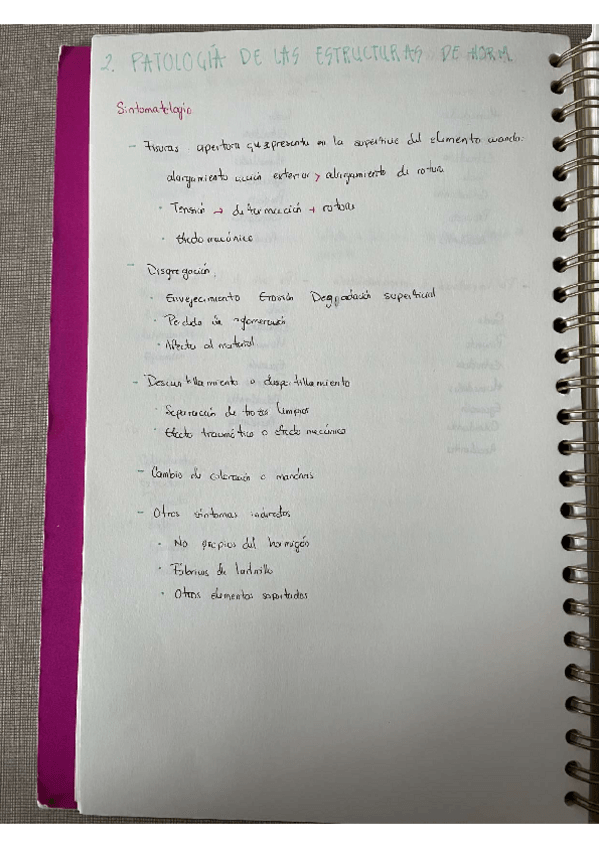 2. PATOLOGÍA DE LAS ESTRUCTURAS DE HORM.
Sintomatología
- Fisuras apertura que presenta en la superficie del elemento cuando:
alargamiento acción exterior > alargamiento de rotura
· Tensión → deformación → rotura
· Efecto mecánico
- Disgregación.
· Envejecimiento Erosión Degradación superficial
· Perdida de aglomeración
· Afecta al material
- Descantillamiento o despostillamiento
· Separación de trozos limpios
· Efecto traumático o efecto mecánico
- Cambio de coloración o manchas
- Otros síntomas indirectos
· No propios del hormigón
· Fábricas de ladrillo
· Otros elementos soportados